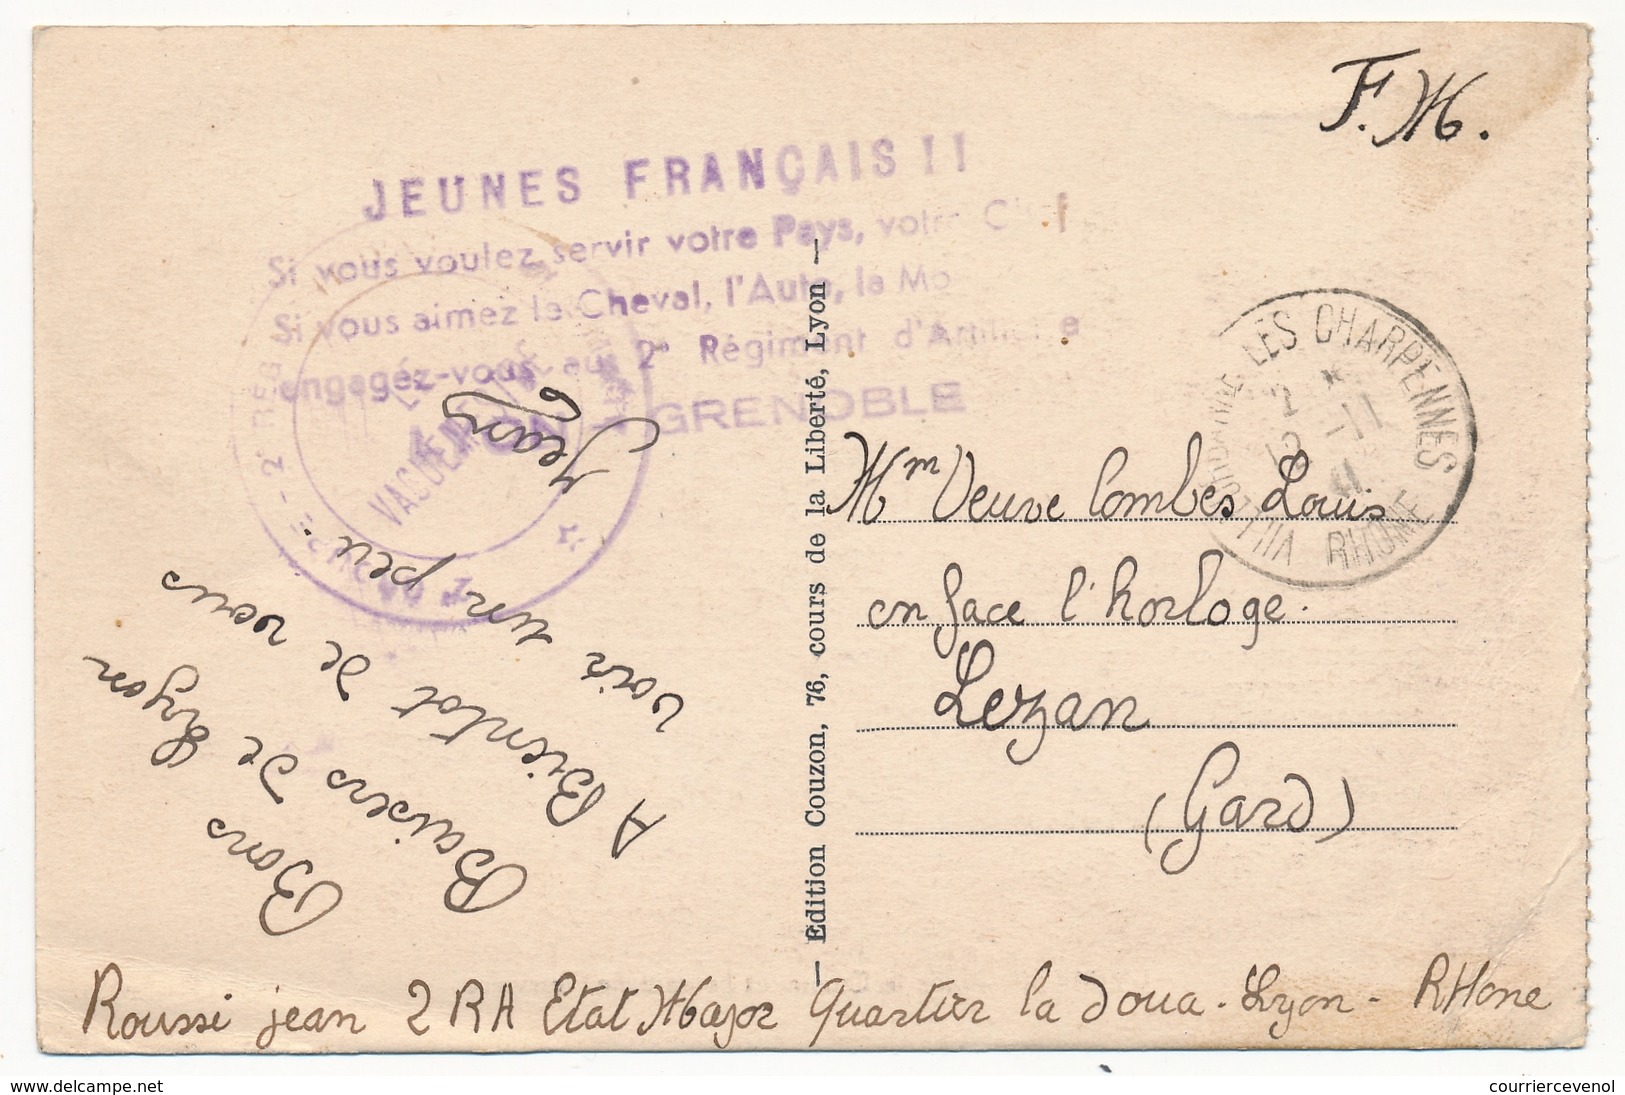 F.M.
JEUNES FRANÇAIS !!
Si vous voulez servir votre Pays, votre Chef
Si vous aimez le Cheval, l'Auto, la Mo
engagez-vous au 2e Régiment d'Artillerie
LYON - GRENOBLE
LE
VAGUEMESTRE
LES CHARPENNES
VILLEURBANNE
RHONE
2 *
12 -11
41
Bons
Baisers de Lyon
A Bientot de vous
voir un peu..
Jean
Edition Couzon, 76, cours de la Liberté, Lyon
Mm Veuve Combes Louis
en face l'horloge.
Lezan
(Gard)
Roussi jean 2 RA Etat Major Quartier la Doua - Lyon - RHone
courriercevenol
delcampe.net